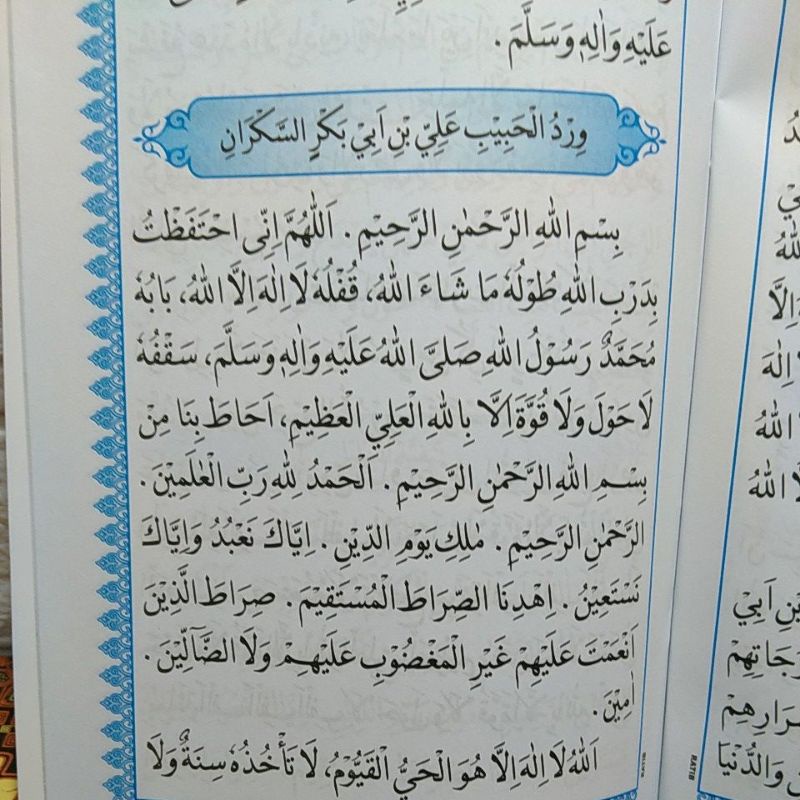 عَلَيْهِ وَاٰلِهٖ وَسَلَّمَ.
وِرْدُ الْحَبِيْبِ عَلِيِّ بْنِ اَبِيْ بَكْرٍ السَّكْرَانِ
بِسْمِ اللهِ الرَّحْمٰنِ الرَّحِيْمِ. اَللّٰهُمَّ اِنِّى احْتَفَظْتُ
بِدَرْبِ اللهِ طُوْلُهٗ مَا شَاءَ اللهُ، قُفْلُهٗ لَا اِلٰهَ اِلَّا اللهُ، بَابُهٗ
مُحَمَّدٌ رَسُوْلُ اللهِ صَلَّى اللهُ عَلَيْهِ وَاٰلِهٖ وَسَلَّمَ، سَقْفُهٗ
لَا حَوْلَ وَلَا قُوَّةَ اِلَّا بِاللهِ الْعَلِيِّ الْعَظِيْمِ، اَحَاطَ بِنَا مِنْ
بِسْمِ اللهِ الرَّحْمٰنِ الرَّحِيْمِ. اَلْحَمْدُ لِلّٰهِ رَبِّ الْعٰلَمِيْنَ.
الرَّحْمٰنِ الرَّحِيْمِ. مٰلِكِ يَوْمِ الدِّيْنِ. اِيَّاكَ نَعْبُدُ وَاِيَّاكَ
نَسْتَعِيْنُ. اِهْدِنَا الصِّرَاطَ الْمُسْتَقِيْمَ. صِرَاطَ الَّذِيْنَ
اَنْعَمْتَ عَلَيْهِمْ غَيْرِ الْمَغْضُوْبِ عَلَيْهِمْ وَلَا الضَّآلِّيْنَ.
اٰمِيْنَ.
اَللهُ لَا اِلٰهَ اِلَّا هُوَ الْحَيُّ الْقَيُّوْمُ، لَا تَأْخُذُهٗ سِنَةٌ وَلَا
اِلَّا
اِلٰهَ
اللهُ
اللهُ
اَبِيْ
وَالدُّنْيَا
RATIB